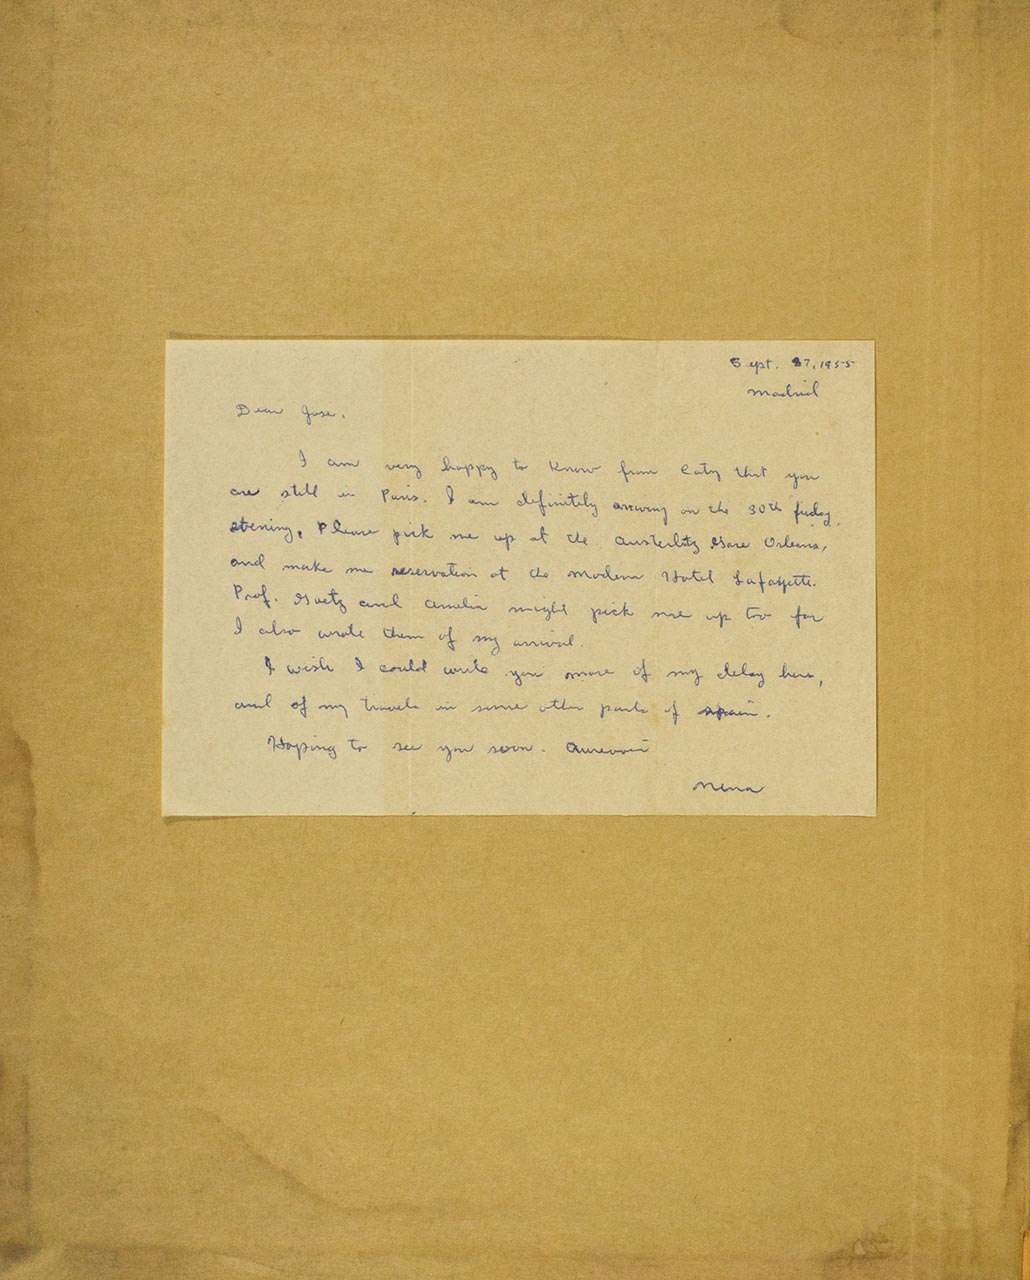 Sept. 27, 1955
Madrid
Dear Jose,
I am very happy to know from Caty that you
are still in Paris. I am definitely arriving on the 30th friday
evening. Please pick me up at the Austerlitz Gare Orleans,
and make me reservation at the Modern Hotel Lafayette.
Prof. Goetz and Amelia might pick me up too for
I also wrote them of my arrival.
I wish I could write you more of my delay here,
and of my travels in some other parts of Spain.
Hoping to see you soon. Aurevoir
Nena